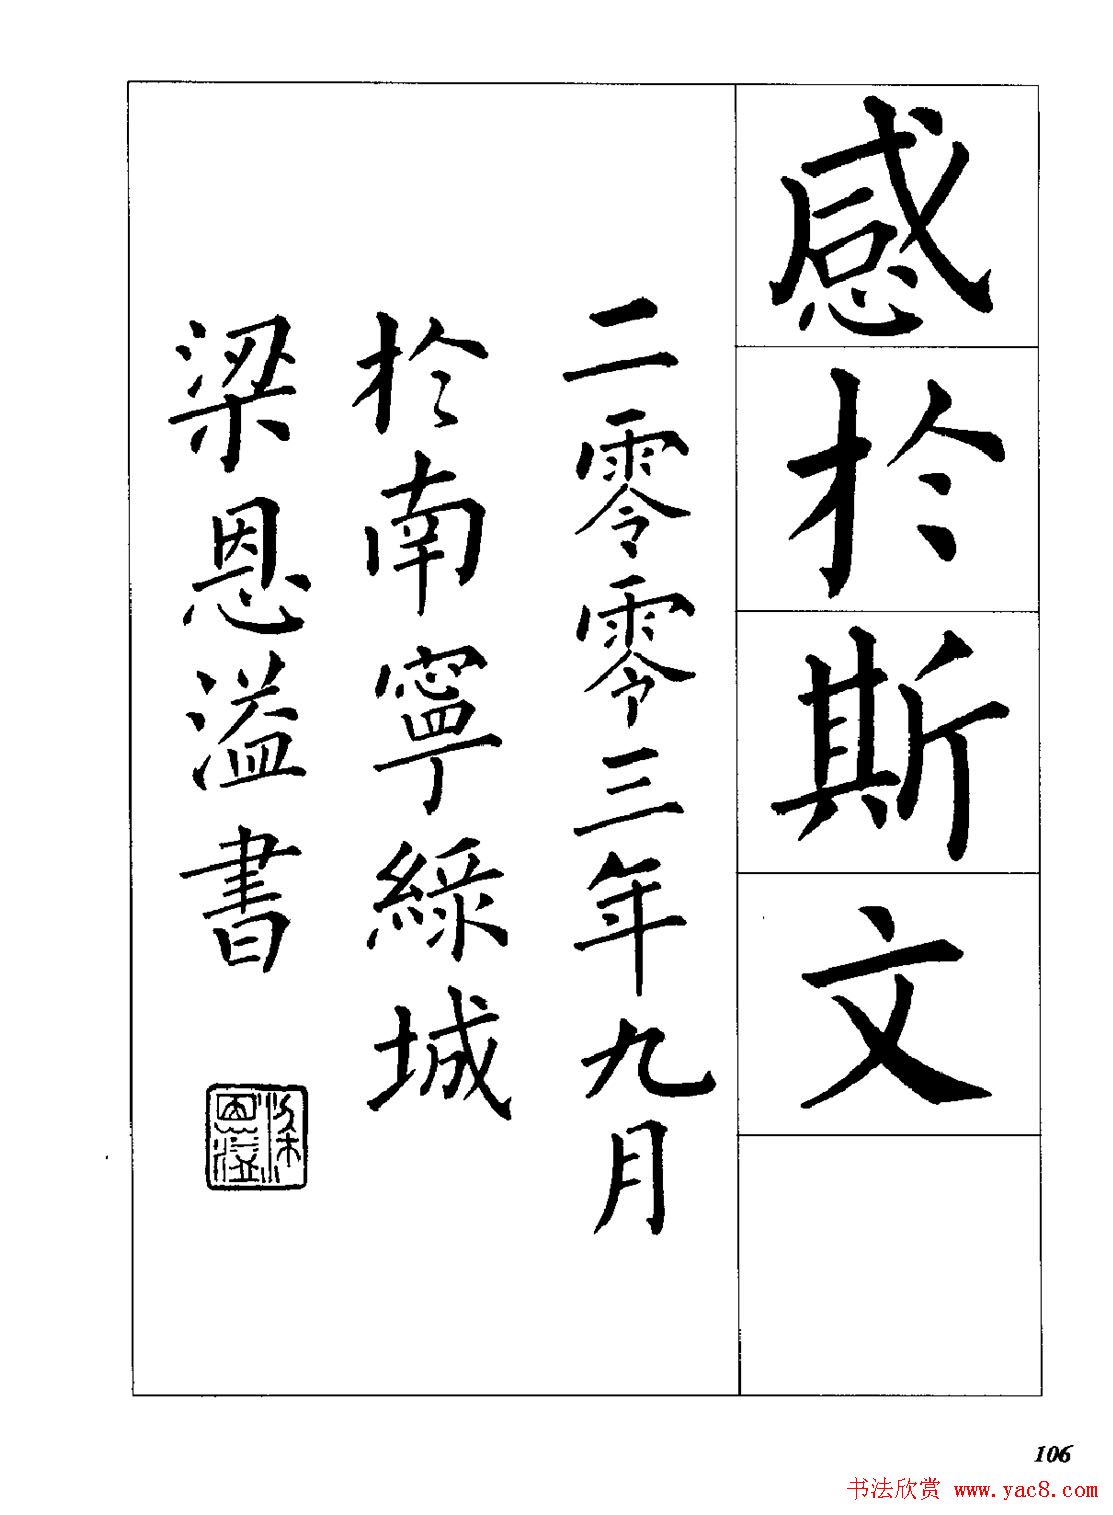 感於斯文
二零零三年九月
於南寧綠城
梁恩溢書
梁恩溢
106
书法欣赏 www.yac8.com